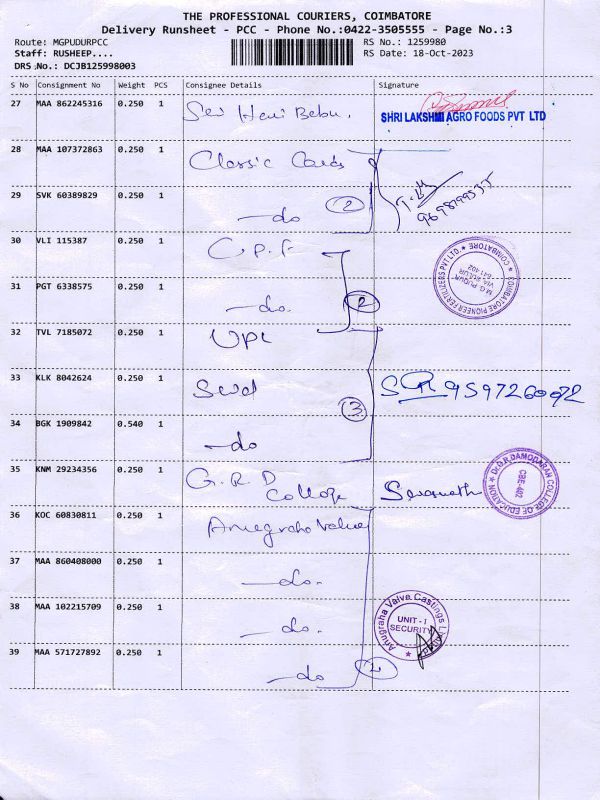 THE PROFESSIONAL COURIERS, COIMBATORE
Delivery Runsheet - PCC - Phone No.:0422-3505555 - Page No.:3
Route: MGPUDURPCC
Staff: RUSHEEP....
DRS No.: DCJB125998003
RS No.: 1259980
RS Date: 18-Oct-2023
S No Consignment No Weight PCS Consignee Details Signature
27 MAA 862245316 0.250 1 Sri Hari Babu.
SHRI LAKSHMI AGRO FOODS PVT LTD
28 MAA 107372863 0.250 1 Classic Cards
29 SVK 60389829 0.250 1 —do (2)
30 VLI 115387 0.250 1 C.P.F
COIMBATORE PIONEER FERTILIZERS PVT LTD. ★ COIMBATORE ★
M.G. PUDUR
VIA SULUR
641 402
31 PGT 6338575 0.250 1 —do. (2)
32 TVL 7185072 0.250 1 UPL
33 KLK 8042624 0.250 1 9597260072
34 BGK 1909842 0.540 1 —do (3)
35 KNM 29234356 0.250 1 G.R.D College
Dr.G.R.DAMODARAN COLLEGE OF EDUCATION ★
CBE-402
36 KOC 60830811 0.250 1 Anugraha Valve
37 MAA 860408000 0.250 1 —do.
38 MAA 102215709 0.250 1 —do.
Anugraha Valve Castings
UNIT - I
SECURITY
39 MAA 571727892 0.250 1 —do (4)